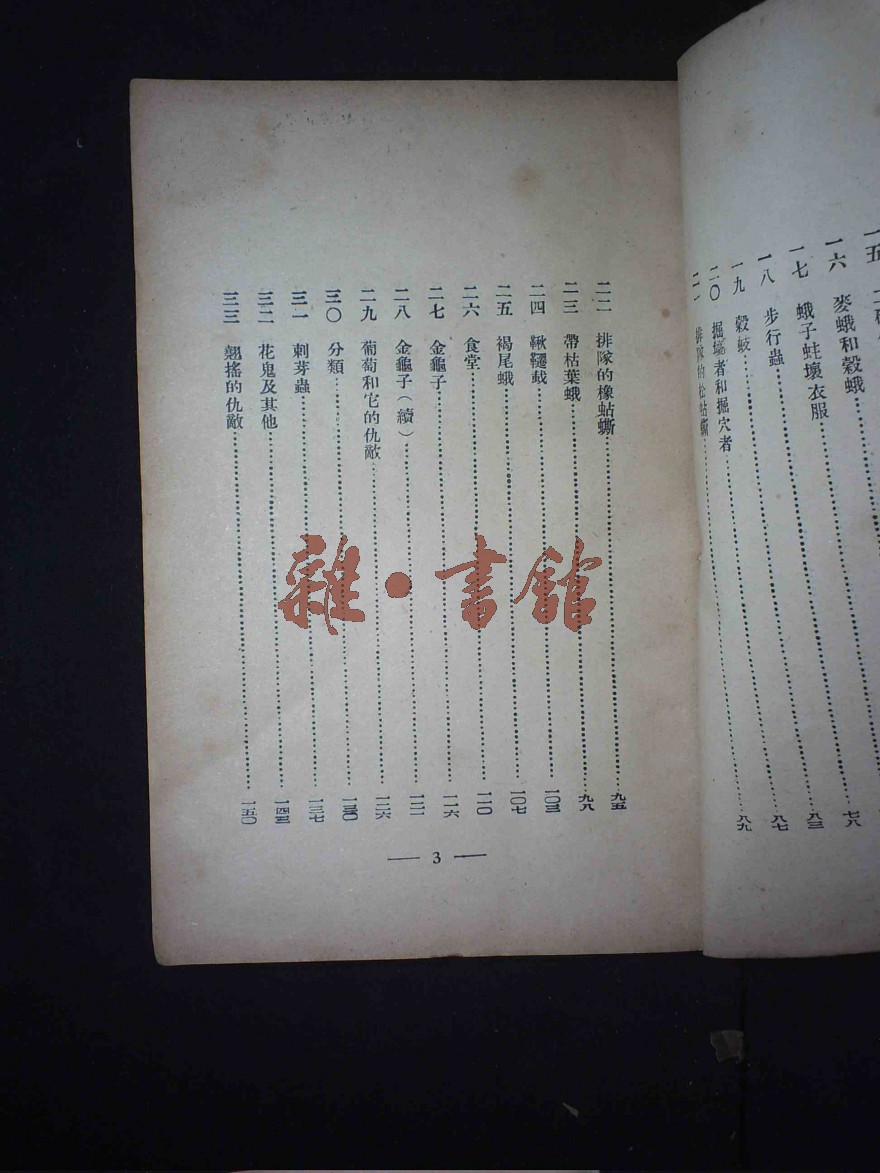 一六　麥蛾和穀蛾……七八
一七　蛾子蛀壞衣服……八三
一八　步行蟲……八七
一九　穀蛟……八九
二〇　掘墳者和掘穴者
二一　排隊的松蛅蟖
二二　排隊的橡蛅蟖……九五
二三　帶枯葉蛾……九八
二四　鞦韆蛓……一〇三
二五　褐尾蛾……一〇七
二六　食堂……一一〇
二七　金龜子……一一六
二八　金龜子(續)……一二一
二九　葡萄和它的仇敵……一二六
三〇　分類……一三〇
三一　刺芽蟲……一三七
三二　花鬼及其他……一四三
三三　翹搖的仇敵……一五〇
— 3 —
雜·書館